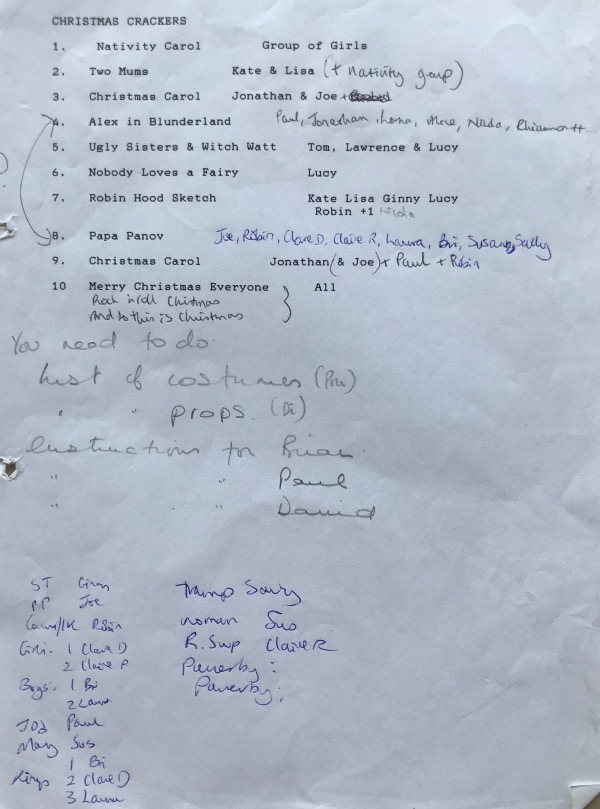 CHRISTMAS CRACKERS
1. Nativity Carol Group of Girls
2. Two Mums Kate & Lisa (+ nativity group)
3. Christmas Carol Jonathan & Joe +
4. Alex in Blunderland Paul, Jonathan, Lorna, Alexe, Nikda, Rhiannon H
5. Ugly Sisters & Witch Watt Tom, Lawrence & Lucy
6. Nobody Loves a Fairy Lucy
7. Robin Hood Sketch Kate Lisa Ginny Lucy
Robin +1
8. Papa Panov Joe, Robin, Clare D, Claire R, Laura, Bri, Susang, Sally
9. Christmas Carol Jonathan (& Joe) + Paul + Robin
10 Merry Christmas Everyone All
Rock n roll Christmas
And so this is Christmas
You need to do:
List of costumes (Pru)
" " props. (Di)
Instructions for Brian
" " Paul
" " David
ST Ginny
PP Joe
Robin
Girls. 1 Clare D
2 Claire
Boys. 1 Bri
2 Laura
Jos Paul
Mary Sus
1 Bri
Kings 2 Clare D
3 Laura
Tramp Sally
woman Sus
R. Swp Claire R
Passerby:
Passerby: